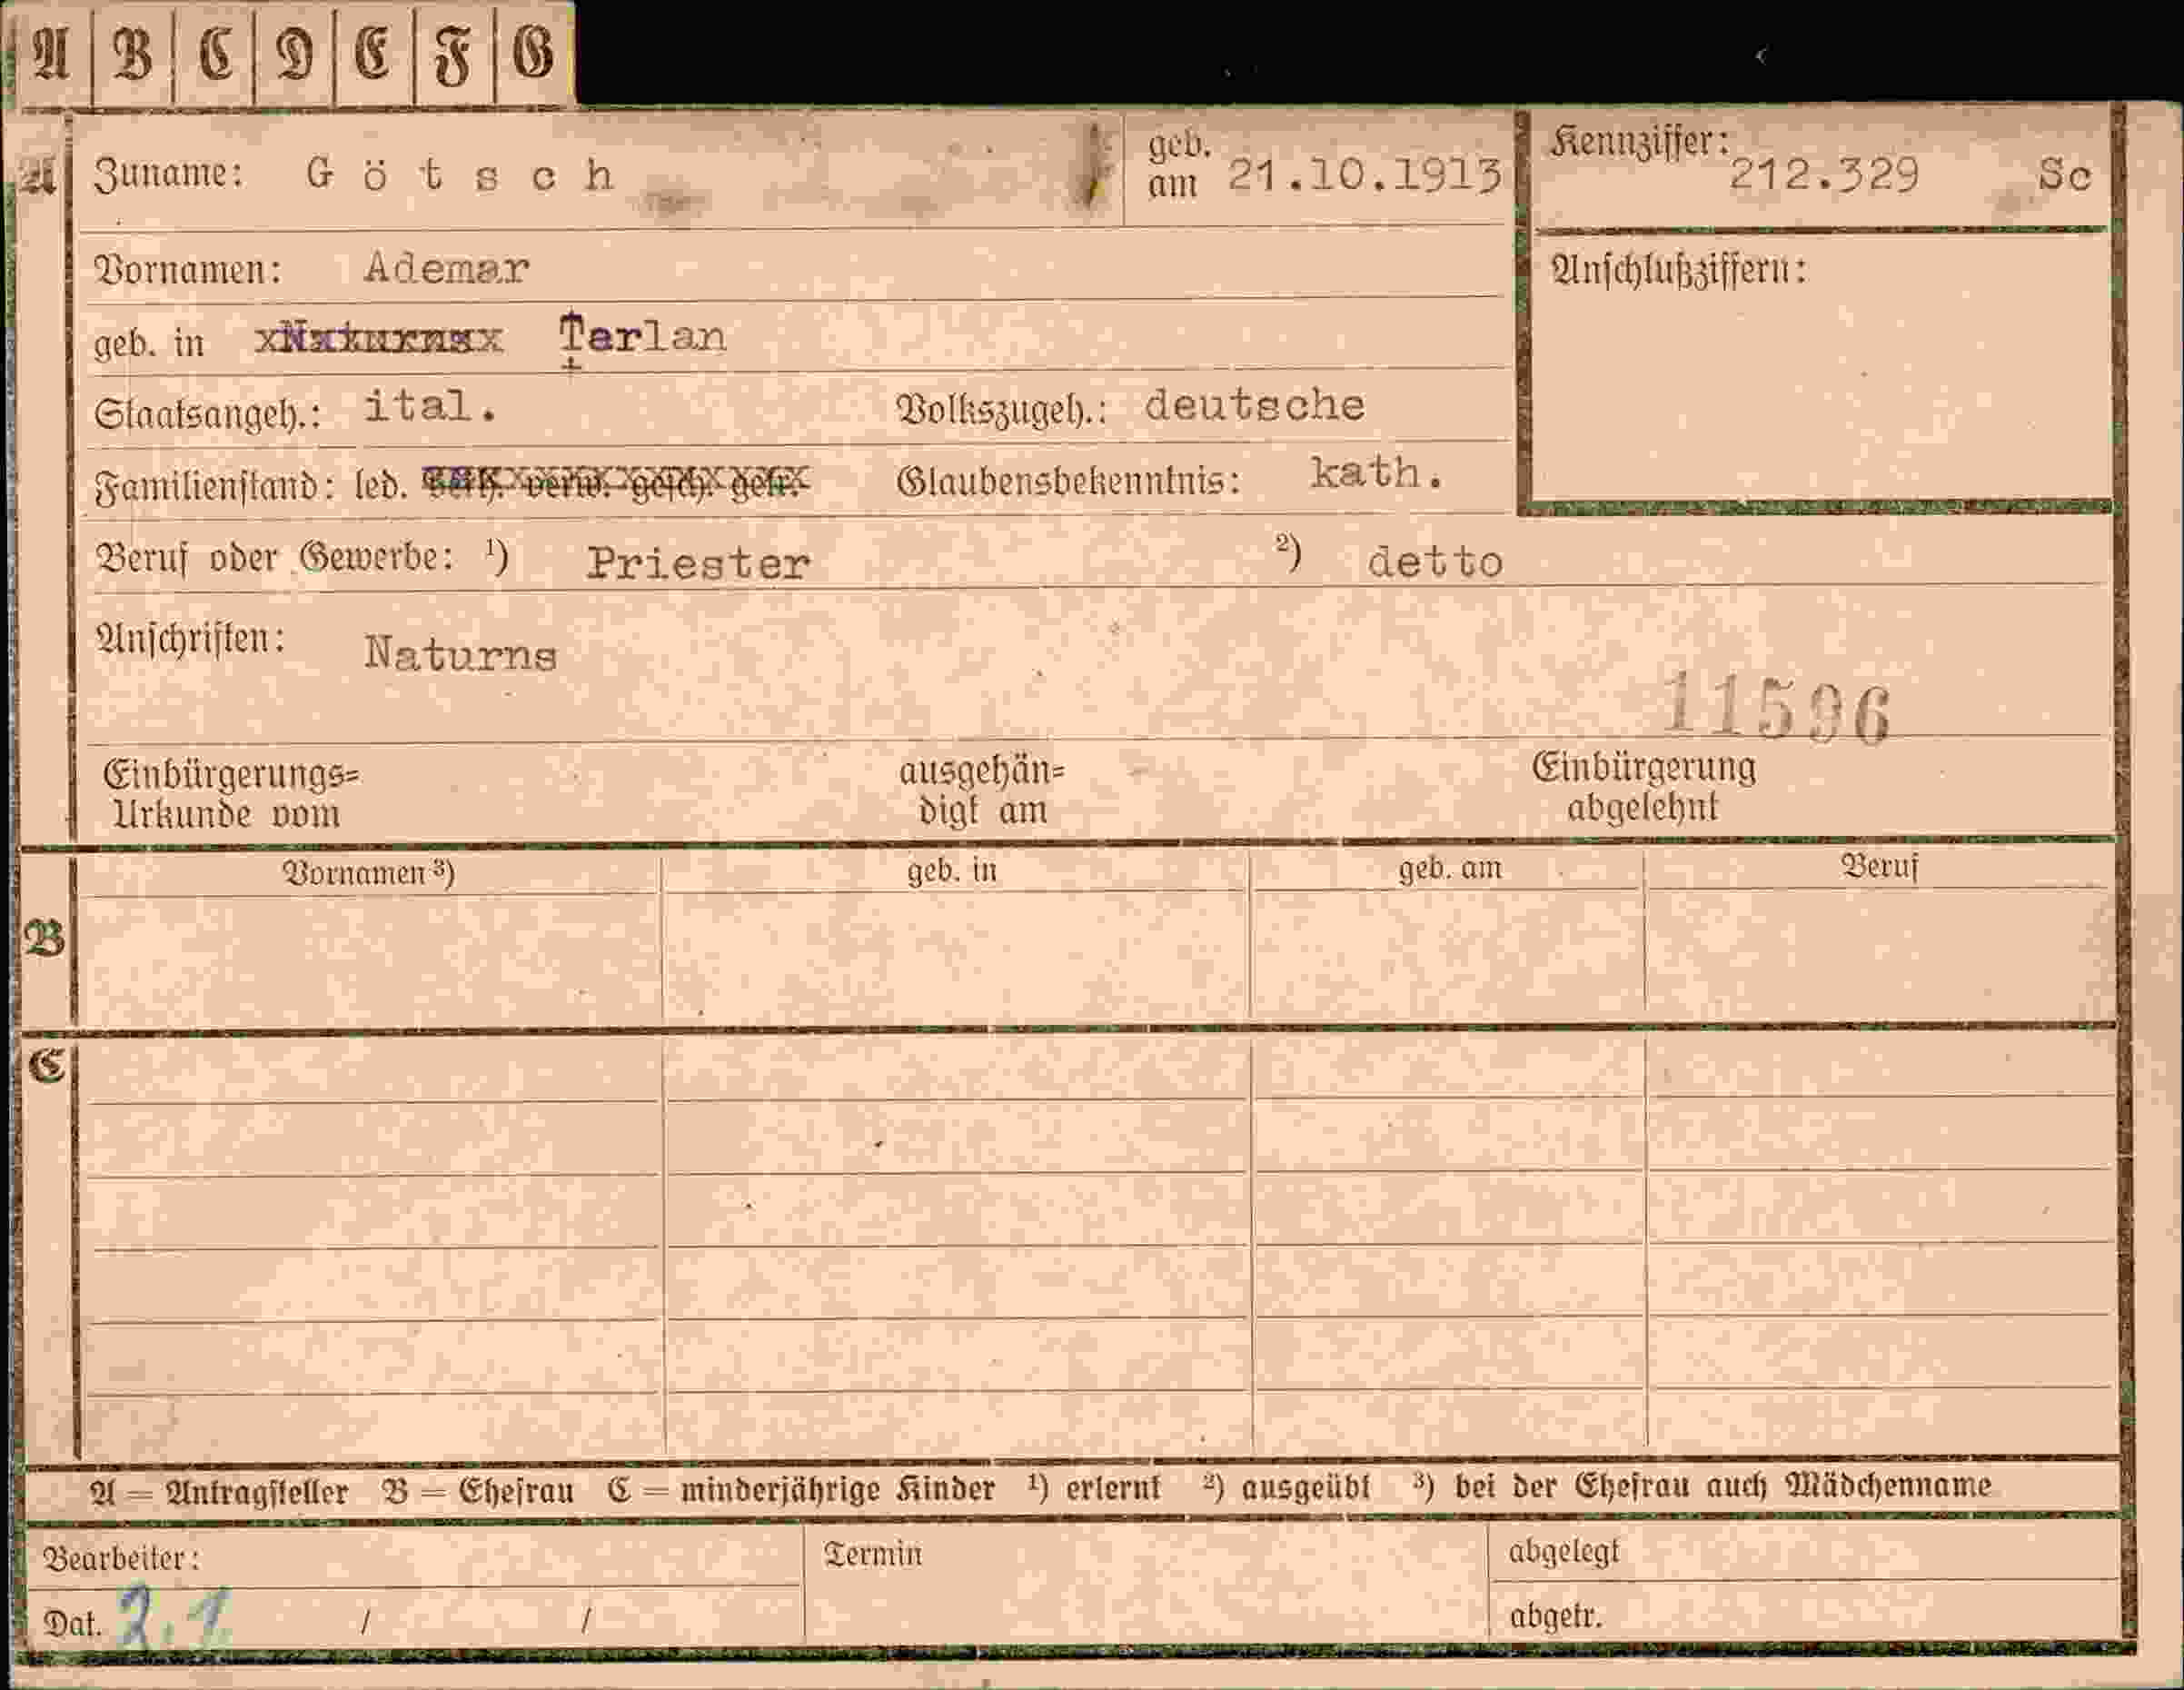 A B C D E F G
A Zuname: Götsch geb. am 21.10.1913 Kennziffer: 212.329 Sc
Vornamen: Ademar Anschlußziffern:
geb. in xNaturnsx Terlan
Staatsangeh.: ital. Volkszugeh.: deutsche
Familienstand: led. verh. verw. gesch. getr. Glaubensbekenntnis: kath.
Beruf oder Gewerbe: ¹) Priester ²) detto
Anschriften: Naturns
11596
Einbürgerungs= ausgehän= Einbürgerung
Urkunde vom digt am abgelehnt
Vornamen ³) geb. in geb. am Beruf
B
C
A = Antragsteller B = Ehefrau C = minderjährige Kinder ¹) erlernt ²) ausgeübt ³) bei der Ehefrau auch Mädchenname
Bearbeiter: Termin abgelegt
Dat. 2.1 / / abgetr.